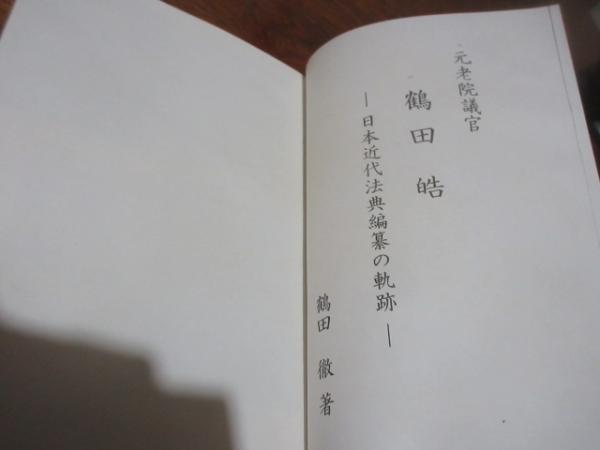 元老院議官
鶴田 皓
―日本近代法典編纂の軌跡―
鶴田 徹 著